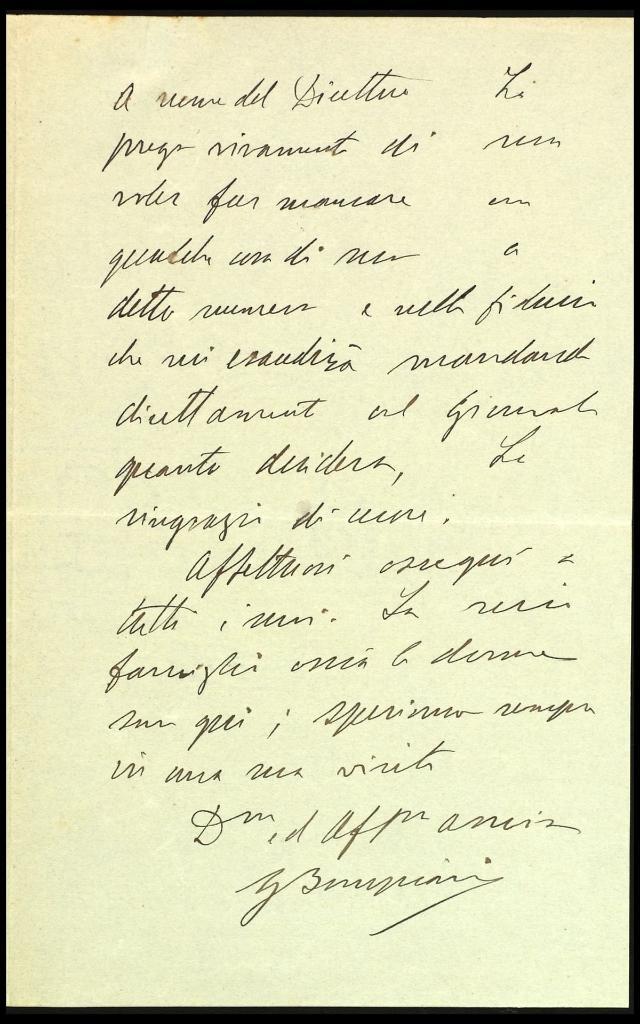 A nome del Direttore La
prego vivamente di non
voler far mancare
qualche cosa di suo a
detto numero e nella fiducia
che mi esaudirà mandando
direttamente al Giornale
quanto desidera, La
ringrazio di cuore.
Affettuosi ossequi a
tutti i suoi. La mia
famiglia ossia le donne
son qui; speriamo sempre
in una sua visita
Dmo ed Affmo amico
G Bompiani